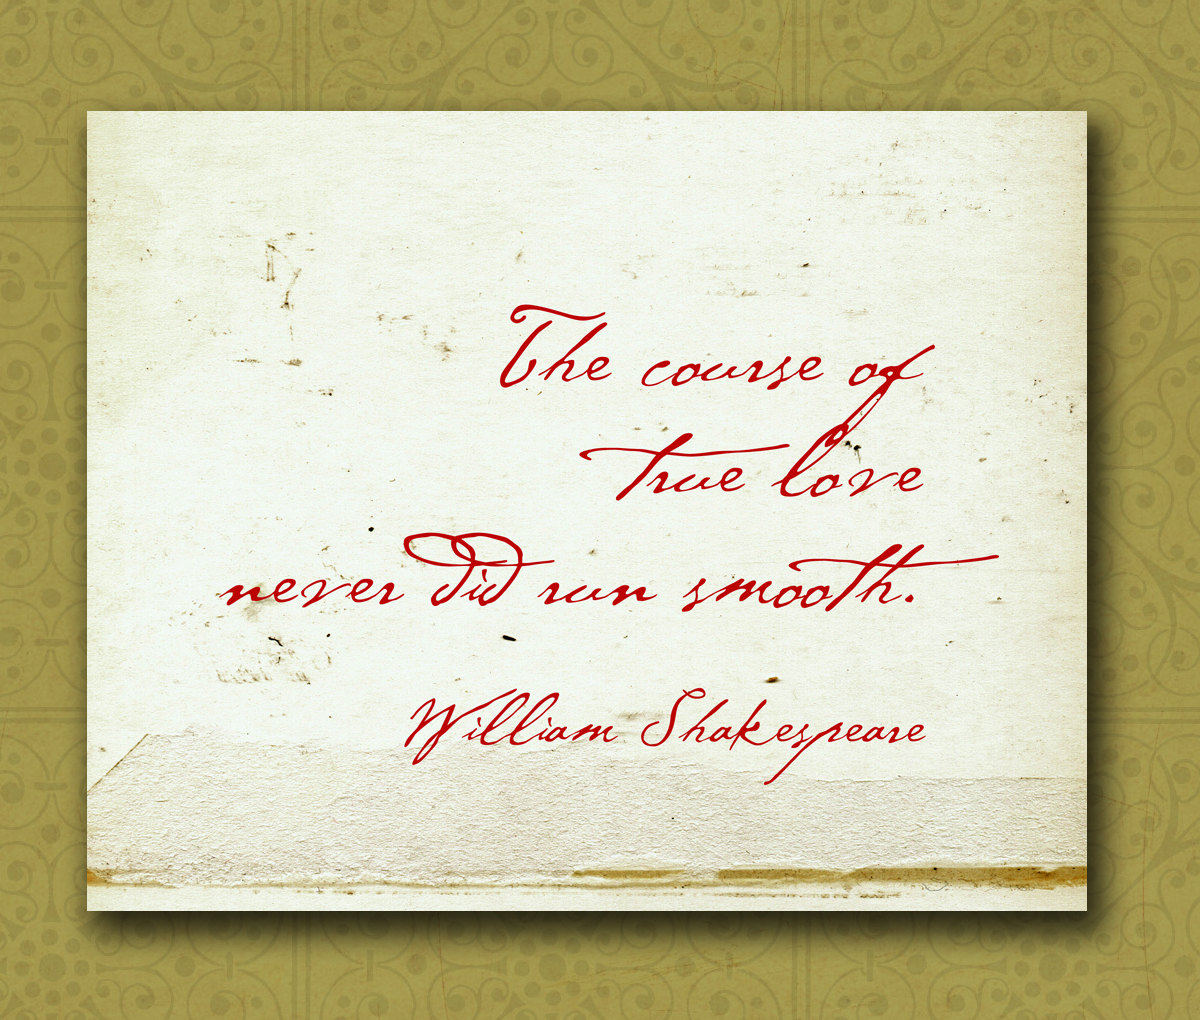 The course of
true love
never did run smooth.
William Shakespeare